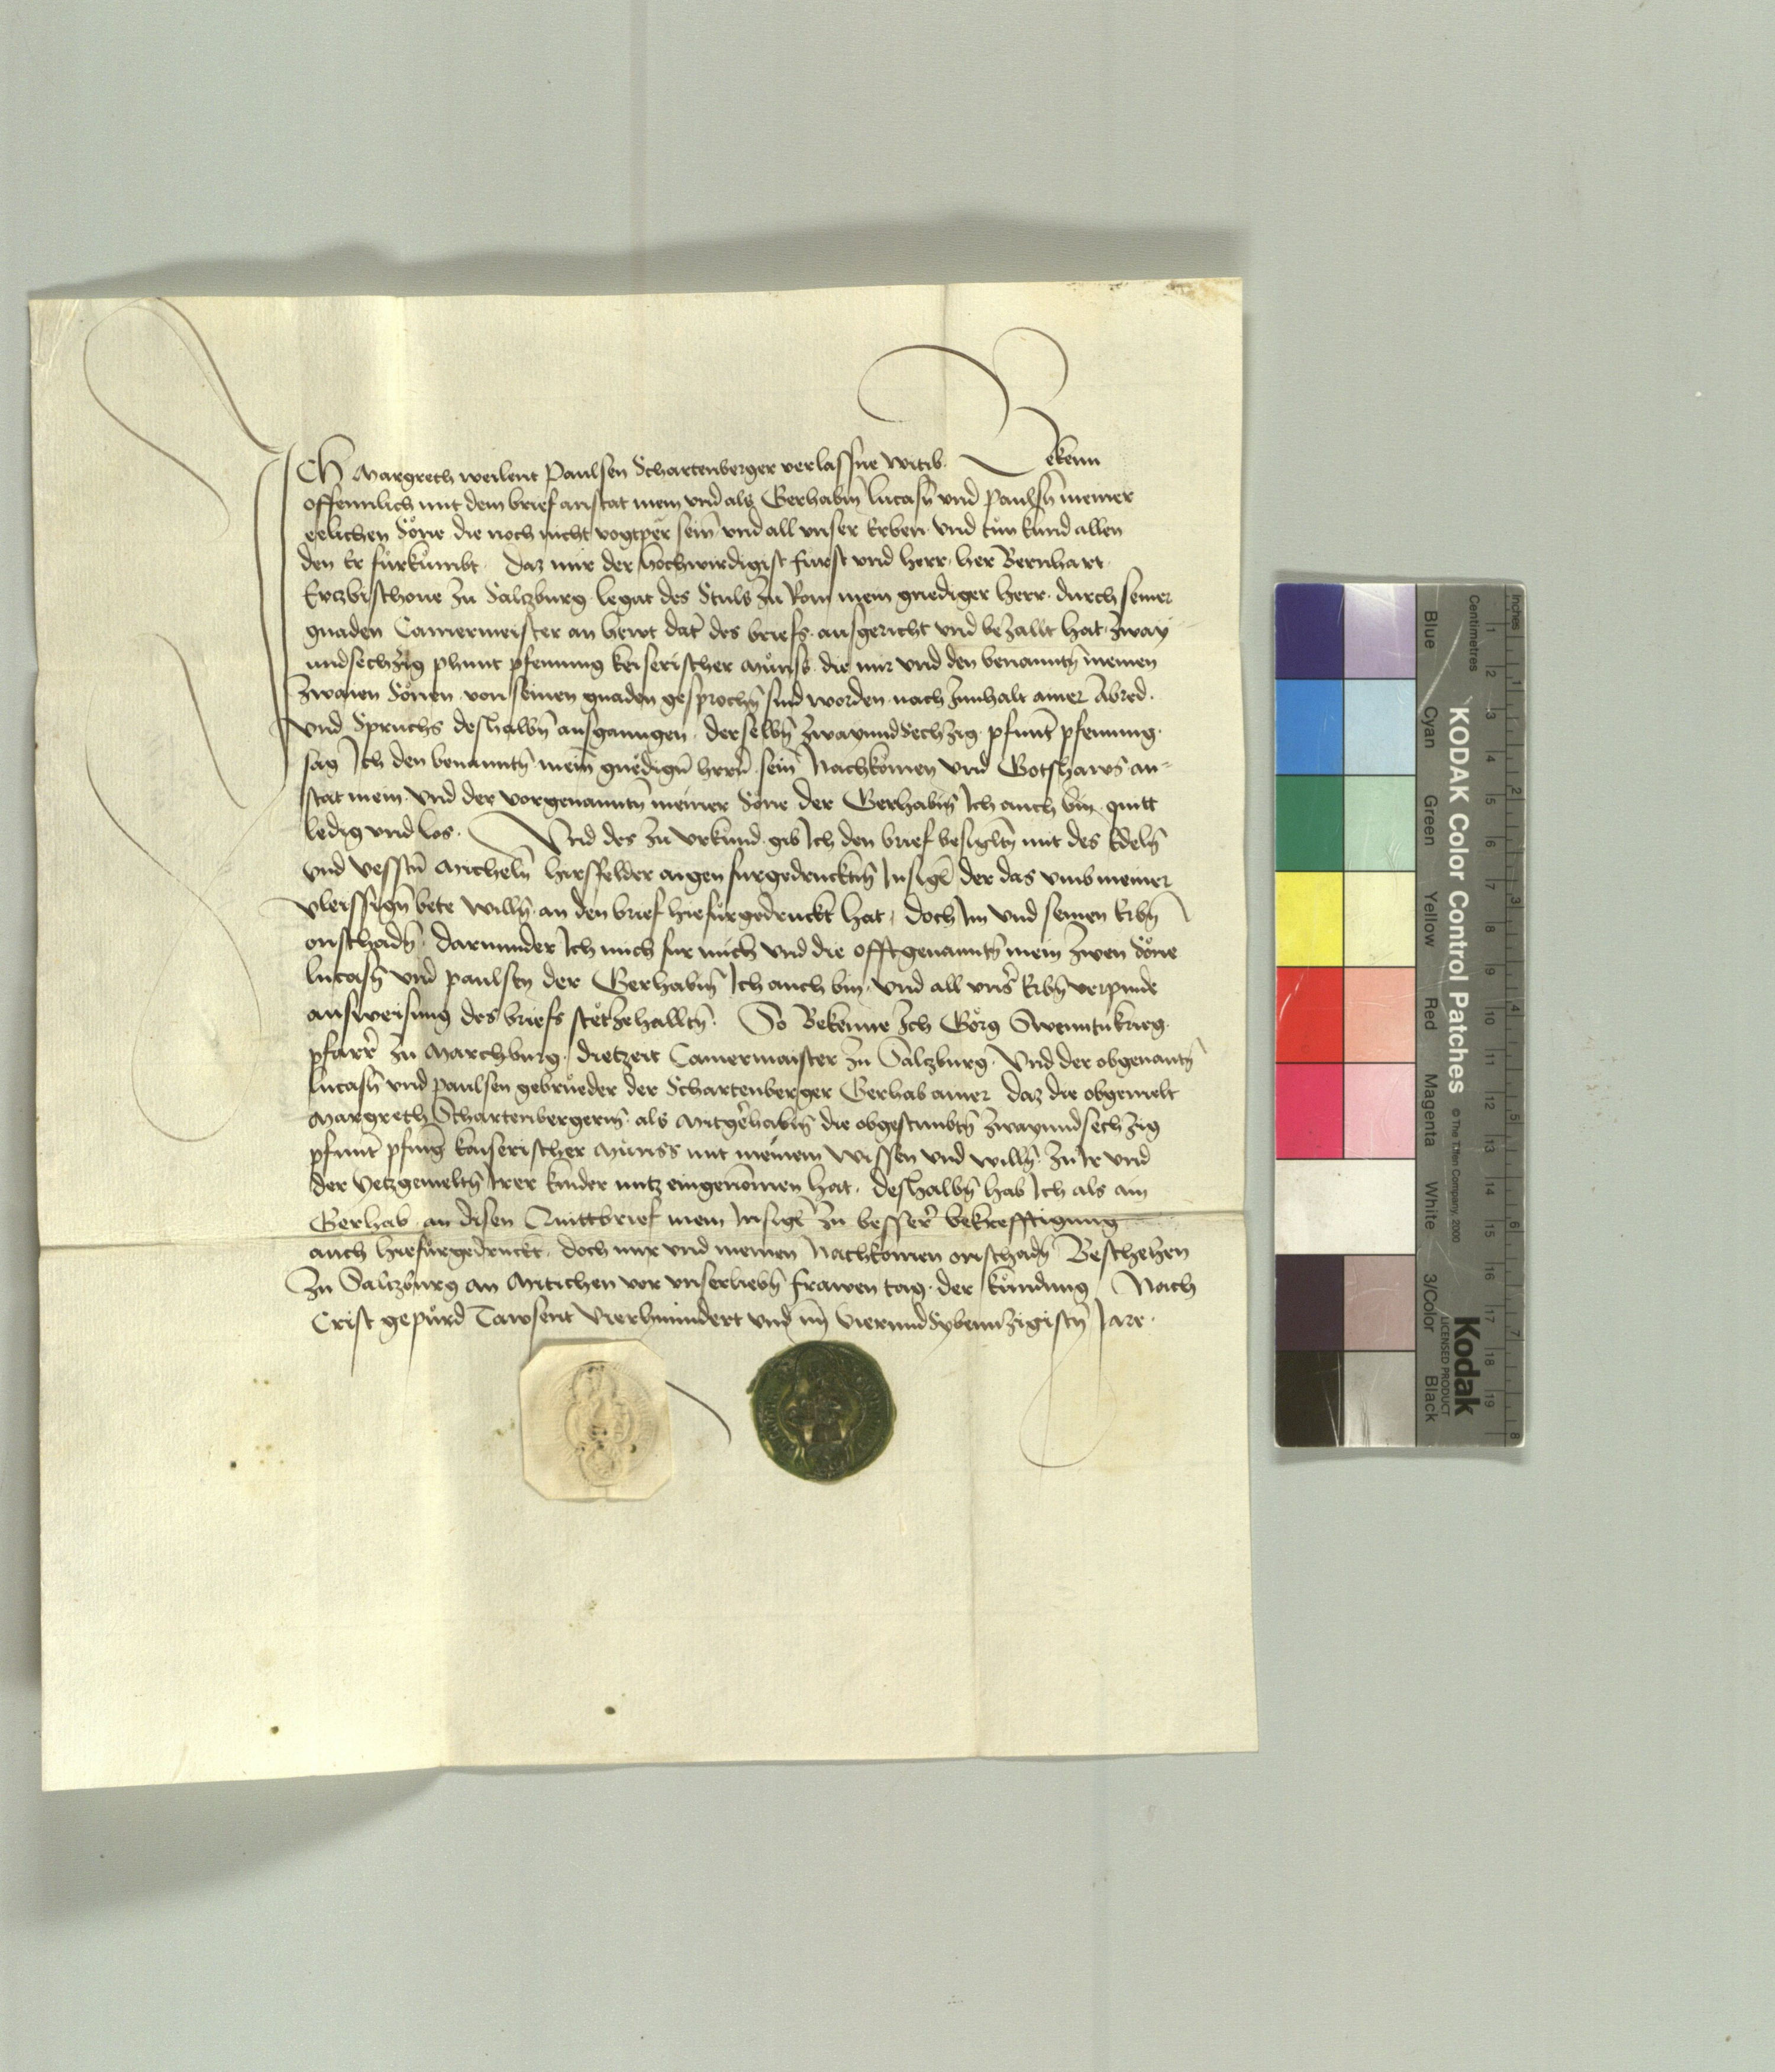 ICh Margreth weilent Paulsen Schartenberger verlassne witib. Bekenn
offennlich mit dem brief anstat mein vnd als Gerhabin̄ lucasn̄ vnd paulsn̄ meiner
eelichen Sōne die noch nicht vogtper sein̄ vnd all vnser Erben vnd tůn kund allen
den Er fůrkumbt. Daz mir der hochwirdigist fürst vnd herr her Bernhart
Ertzbischoue zu Saltzburg legat des Stuls zu Rom mein gnediger herr. durch seiner
gnaden Camermeister an hewt dat̄ des briefs ausgericht vnd betzallt hat. zway
undsechtzig phunt pfenning keiserischer Můnss. die mir vnd den benanntn̄ meinen
zwaien Sōnen von seinen gnaden gesprochn̄ sind worden nach Innhalt ainer Abred.
vnd Spruchs deshalbn̄ ausganngen. derselbn̄ zwayunndSechzig pfunt pfenning.
sag Ich den benanntn̄ mein̄ gnedign̄ herrn̄ sein̄ Nachkōmen vnd Gotshaws an-
stat mein vnd der vorgenanntn̄ meiner Sōne der Gerhabin̄ Ich auch bin quitt
ledig vnd los. Vnd des zu vrkund gib Ich den brief besigltn̄ mit des Edeln̄
vnd vesstn̄ Micheln̄ hirsfelder aigen furgedrucktm̄ Insigl der das vmb meiner
vleissign̄ bete willn̄ an den brief hiefůrgedruckt hat, doch Im vnd seinen Erbn̄
onschadn̄. darunnder Ich mich fur mich vnd die offtgenanntn̄ mein zwen Sōne
lucasn̄ vnd paulsen der Gerhabin̄ Ich auch bin. vnd all vns̄ Erbn̄ verpinde
ausweisung des briefs stēt zehalltn̄. So Bekenne Ich Gōrg Swenntnkrieg.
pfarr̄ zu Marchburg. dietzeit Camermaister zu Saltzburg. Vnd der obgenantn̄
lucasn̄ vnd paulsen gebrueder der Schartenberger Gerhab ainer daz die obgemelt
Margreth Schartenbergerin̄ als Mitgerhabin̄ die obgestimbtn̄ zwayundsechzig
pfunt pfenīg kaiserischer Můnss mit meinem wissen vnd willn̄ zu Ir vnd
der yetzgemeltn̄ Irer kinder nutz eingenōmen hat. deshalbn̄ hab Ich als ain
Gerhab an disen Quittbrief mein Insigl zu besser̄ bekrefftigung
auch hiefůrgedruckt. doch mir vnd meinen Nachkōmen onschadn̄ Beschehen
zu Saltzburg an Mitichen vor vnserliebn̄ frawen tag. der kündung Nach
Crist gepůrd Tawsent Vierhunndert vnd im̄ VierundSybenntzigistn̄ Jare.
KODAK Color Control Patches © The Tiffen Company, 2000
Kodak
LICENSED PRODUCT
Inches 1 2 3 4 5 6 7 8
Centimetres 1 2 3 4 5 6 7 8 9 10 11 12 13 14 15 16 17 18 19
Blue Cyan Green Yellow Red Magenta White 3/Color Black